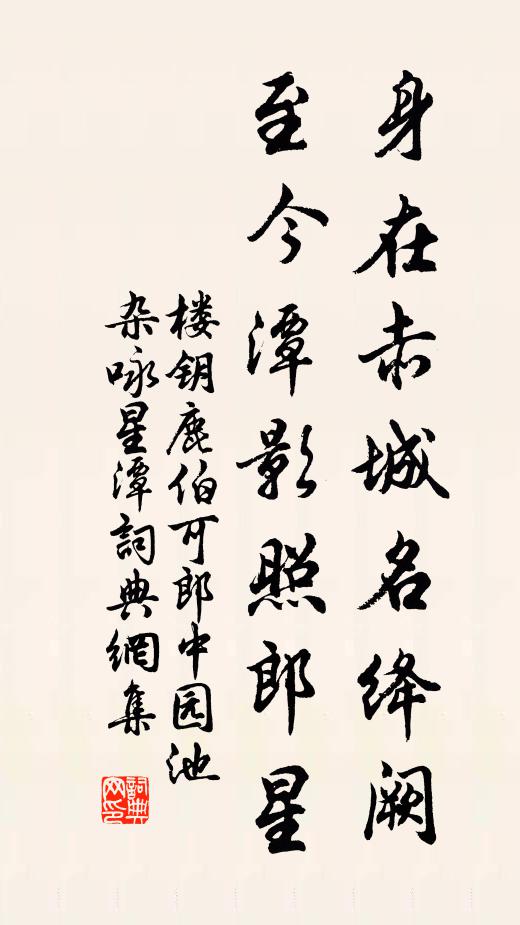 身在赤城名绛阙
至今潭影照郎星
楼钥鹿伯可郎中园池
杂咏星潭詞典網集
詞典网印